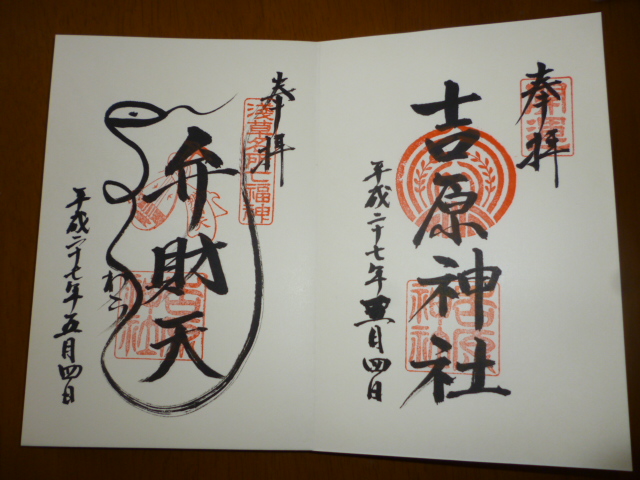 奉拝
開運
吉原神社
平成二十七年五月四日
奉拝
浅草名所七福神
弁財天
平成二十七年五月四日